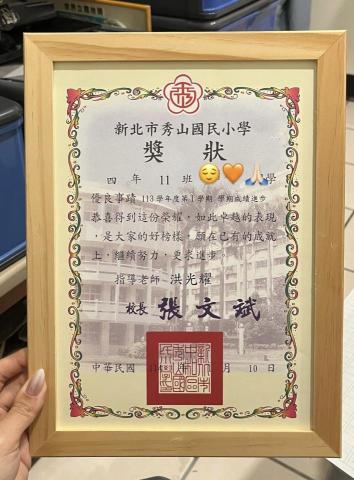 新北市秀山國民小學
獎狀
四年 11 班 學
優良事蹟 113學年度第1學期 學期成績進步
恭喜得到這份榮耀，如此卓越的表現
，是大家的好榜樣，願在已有的成就
上，繼續努力，更求進步。
指導老師 洪光耀
校長 張文斌
中華民國 年 月 10 日